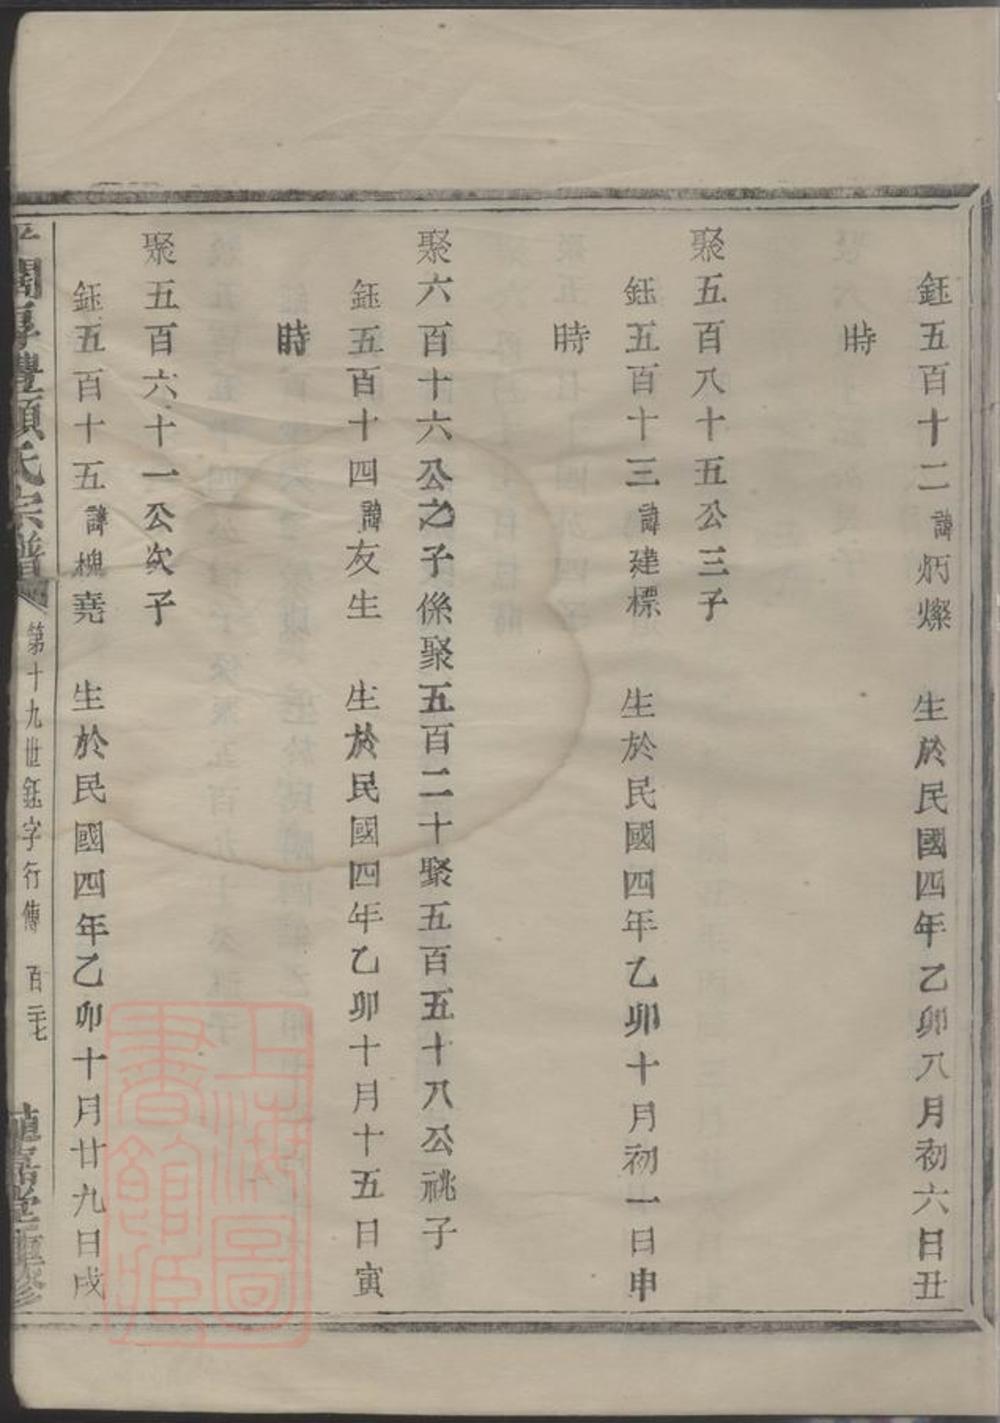 鈺五百十二諱炳燦 生於民國四年乙卯八月初六日丑
時
聚五百八十五公三子
鈺五百十三諱建標 生於民國四年乙卯十月初一日申
時
聚六百十六公之子係聚五百二十聚五百五十八公祧子
鈺五百十四諱友生 生於民國四年乙卯十月十五日寅
時
聚五百六十一公次子
鈺五百十五諱槐堯 生於民國四年乙卯十月廿九日戌
厚豊顧氏宗譜 第十九世鈺字行傳 百二七
上海圖書館藏